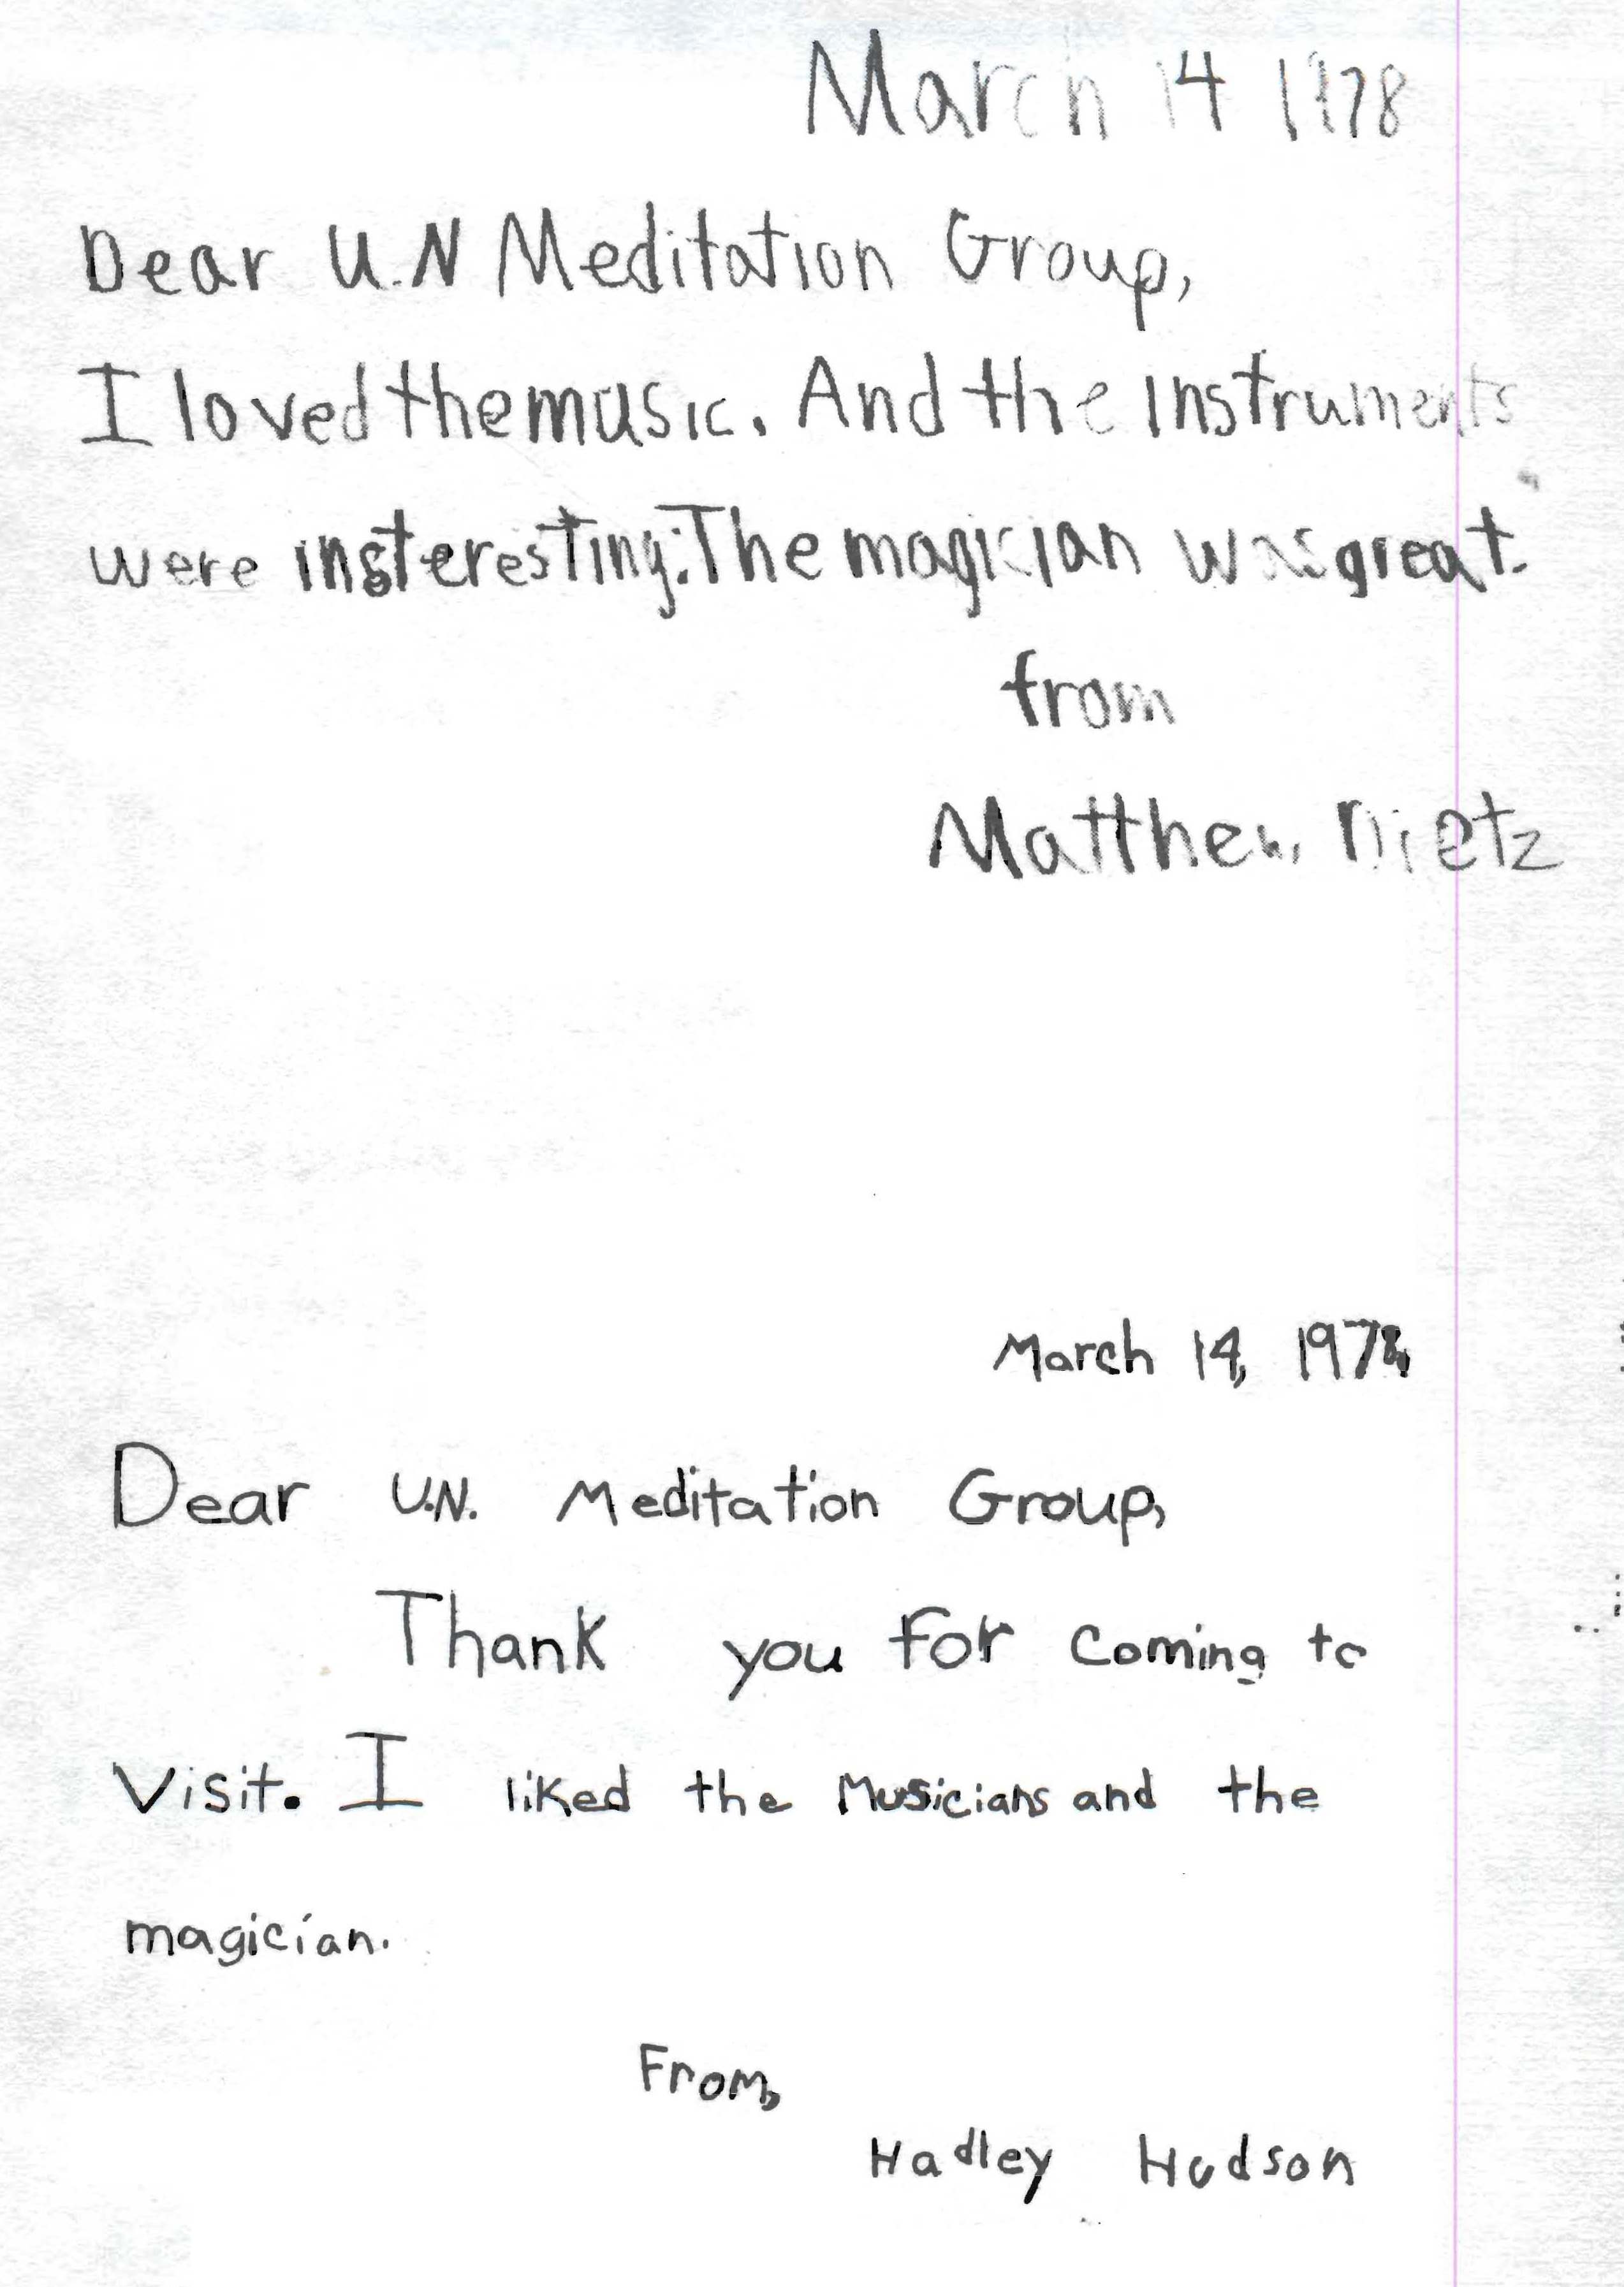 March 14 1978
Dear U.N Meditation Group,
I loved the music. And the instruments
were insteresting. The magician was great.
from
Matthew Dietz
March 14, 1978
Dear U.N. Meditation Group,
Thank you for coming to
visit. I liked the Musicians and the
magician.
From,
Hadley Hudson